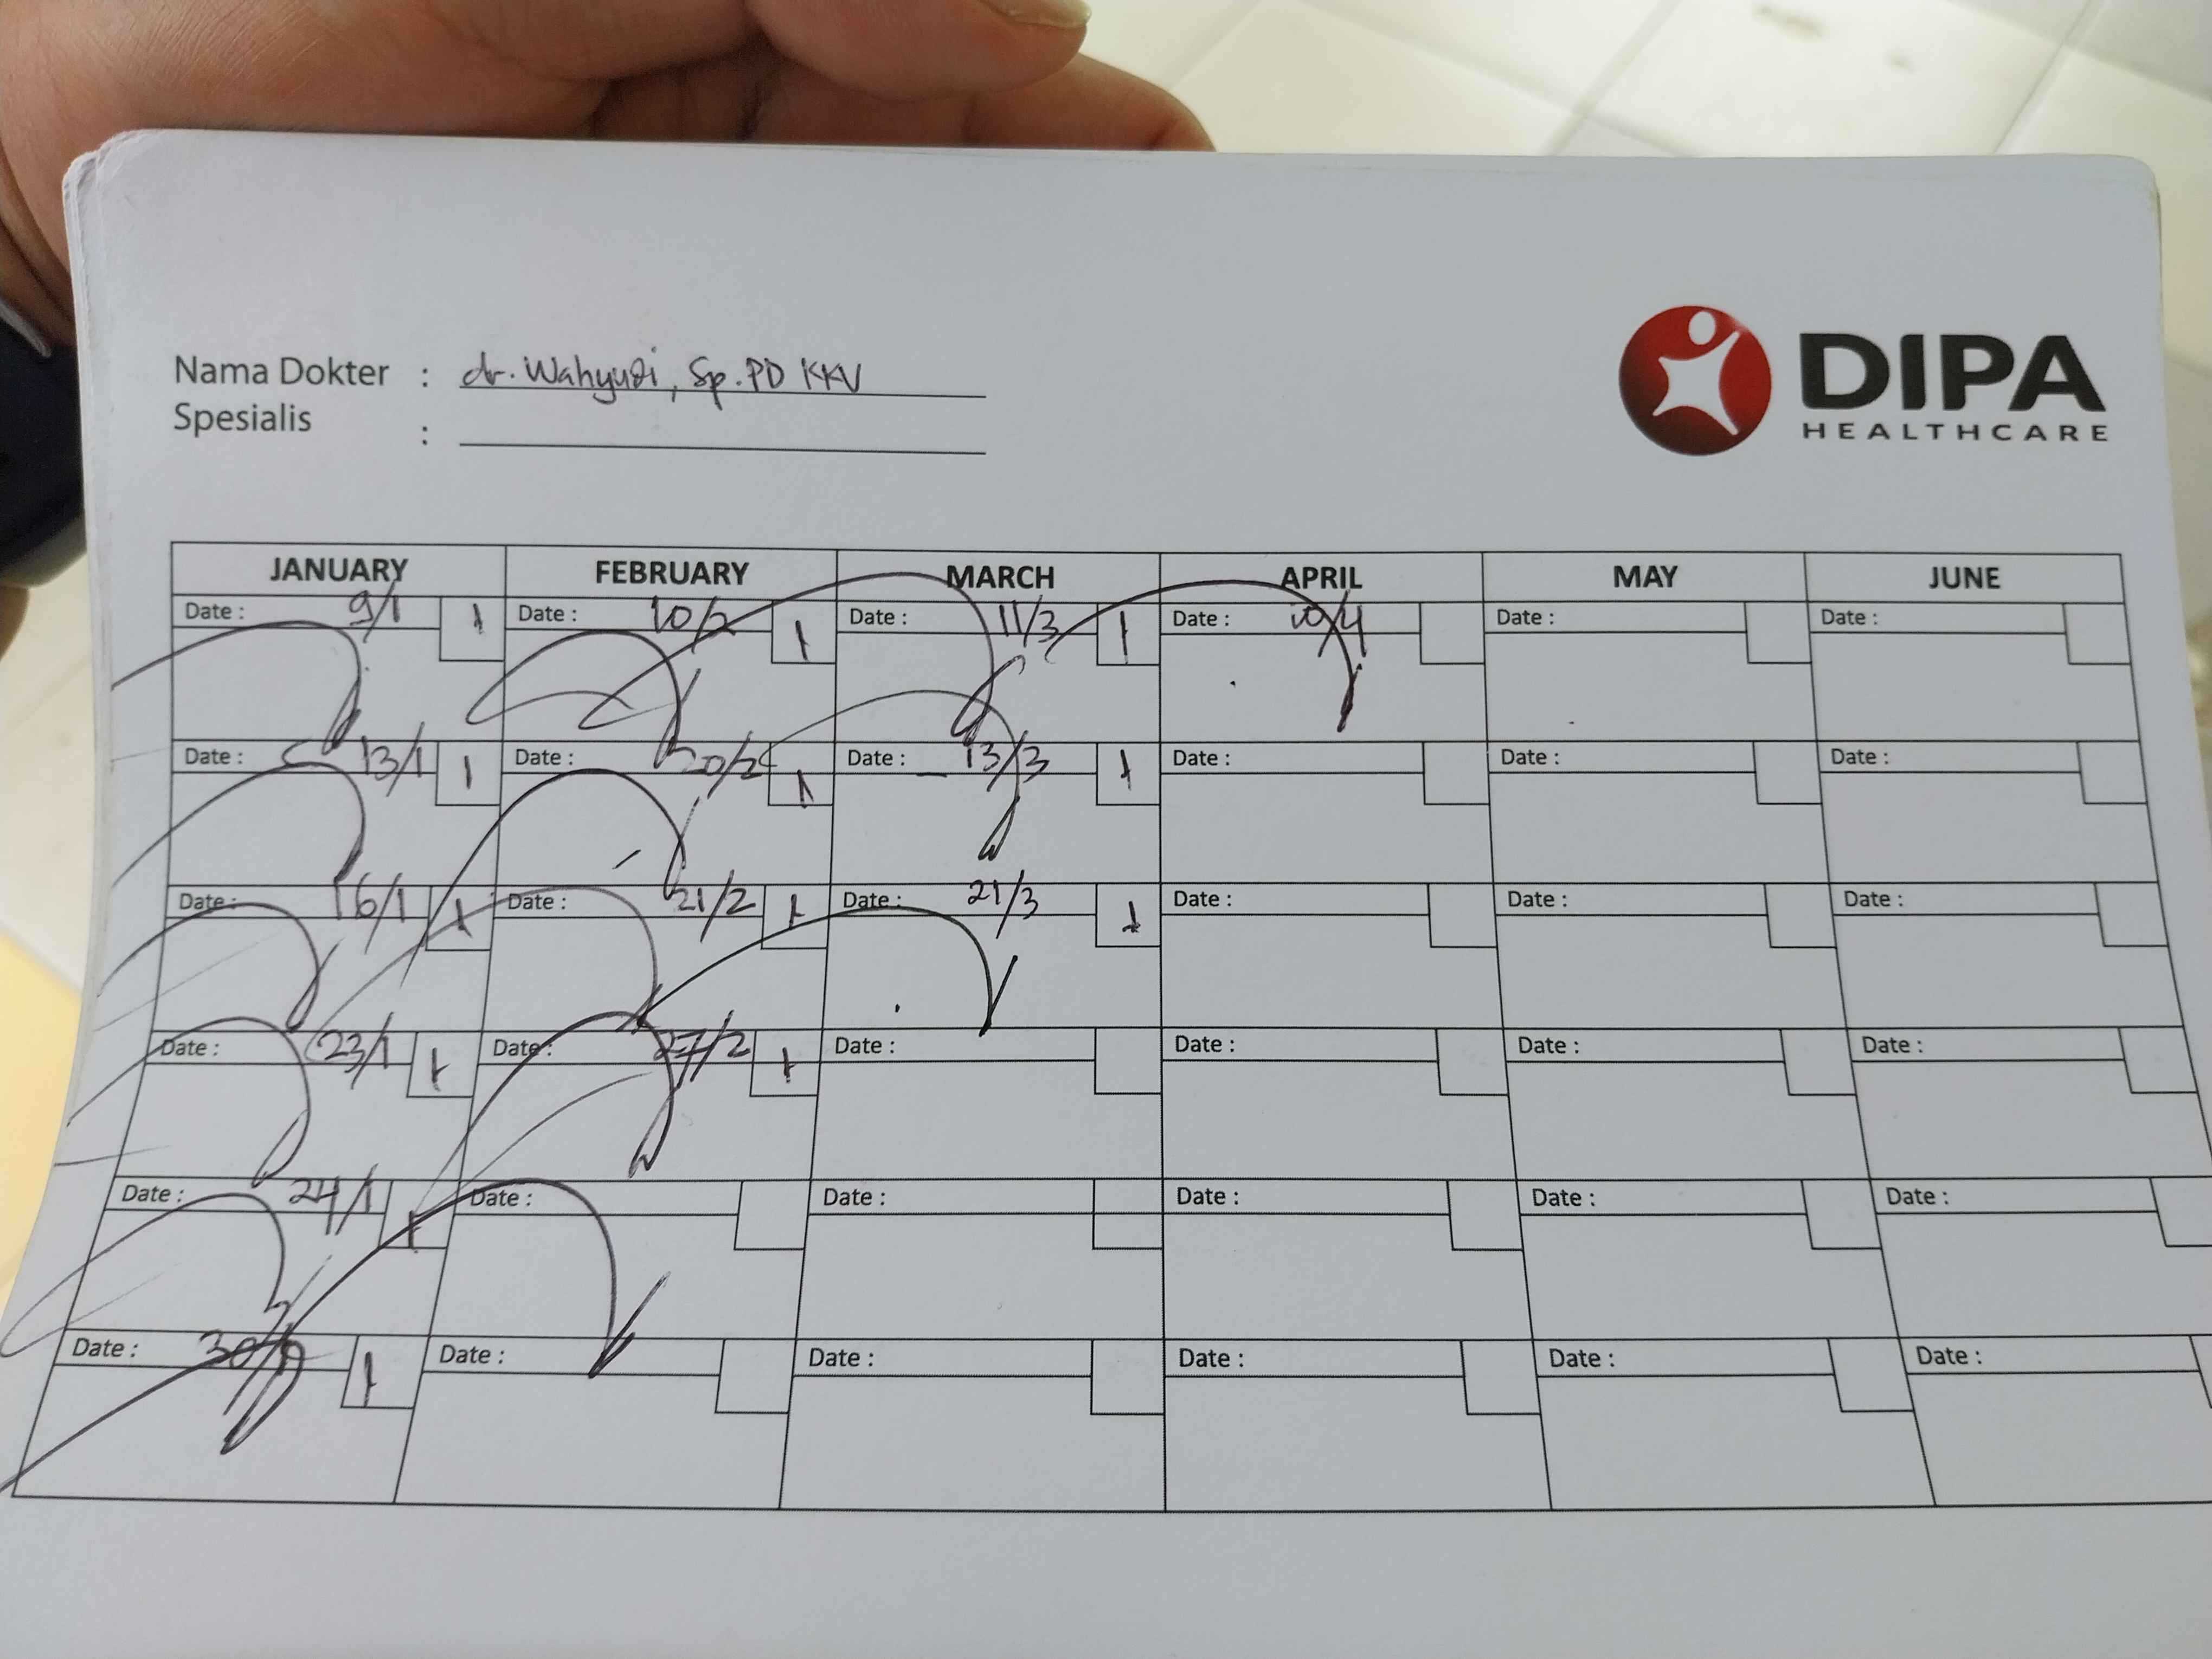 Nama Dokter : dr. Wahyudi, Sp.PD KKV
Spesialis :
DIPA
HEALTHCARE
JANUARY FEBRUARY MARCH APRIL MAY JUNE
Date : 9/1 1 Date : 10/2 1 Date : 11/3 1 Date : 10/4 Date : Date :
Date : 13/1 1 Date : 20/2 1 Date : 13/3 1 Date : Date : Date :
Date : 16/1 1 Date : 21/2 1 Date : 21/3 1 Date : Date : Date :
Date : 23/1 1 Date : 27/2 1 Date : Date : Date : Date :
Date : 24/1 1 Date : Date : Date : Date : Date :
Date : 30/1 1 Date : Date : Date : Date : Date :